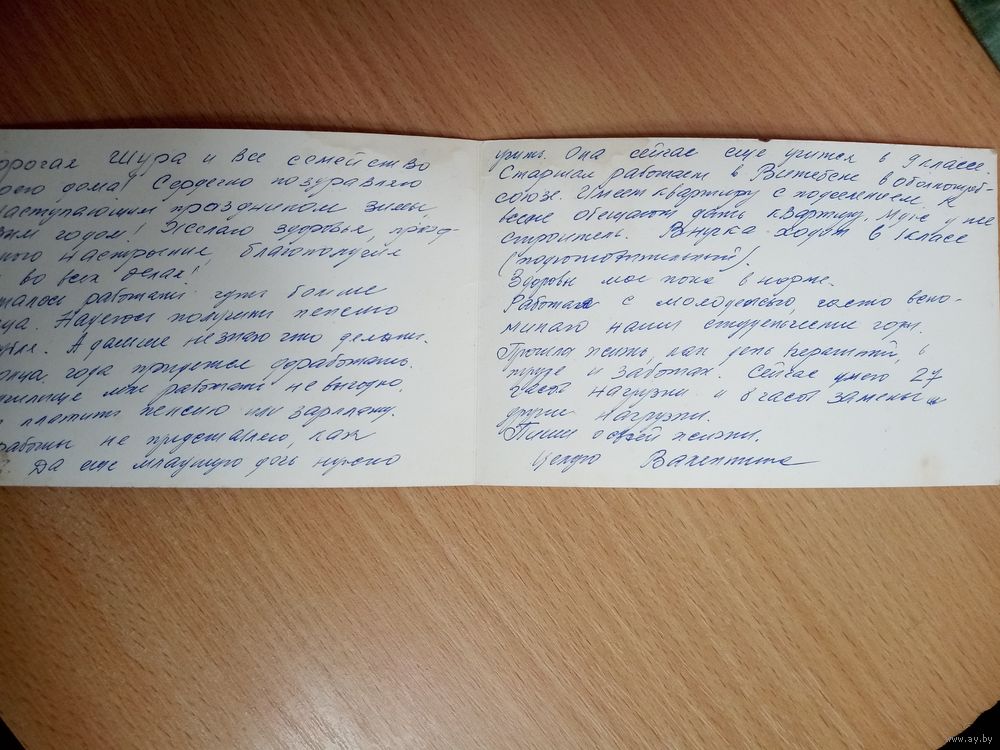 орогая Шура и все семейство
оего дома! Сердечно поздравляю
наступающим праздником зимы,
вым годом! Желаю здоровья, празд-
ного настроения, благополучия
во всех делах!
талось работать чуть больше
ца. Надеюсь получить пенсию
убля. А дальше не знаю что делать.
онца года придется доработать.
училище мне работать не выгодно,
платить пенсию или зарплату.
работы не представляю, как
Да еще младшую дочь нужно
учить. Она сейчас еще учится в 9 классе.
Старшая работает в Витебске в облпотреб-
союзе. Имеет квартиру с подселением. К
весне обещают дать квартиру. Муж у нее
строитель. Внучка ходит в 1 класс
(подготовительный).
Здоровье мое пока в норме.
Работая с молодежью, часто вспо-
минаю наши студенческие годы.
Прошла жизнь, как день вчерашний, в
труде и заботах. Сейчас у меня 27
часов нагрузки и 6 часов замены и
другие нагрузки.
Пиши о своей жизни.
Целую Валентина
www.ay.by